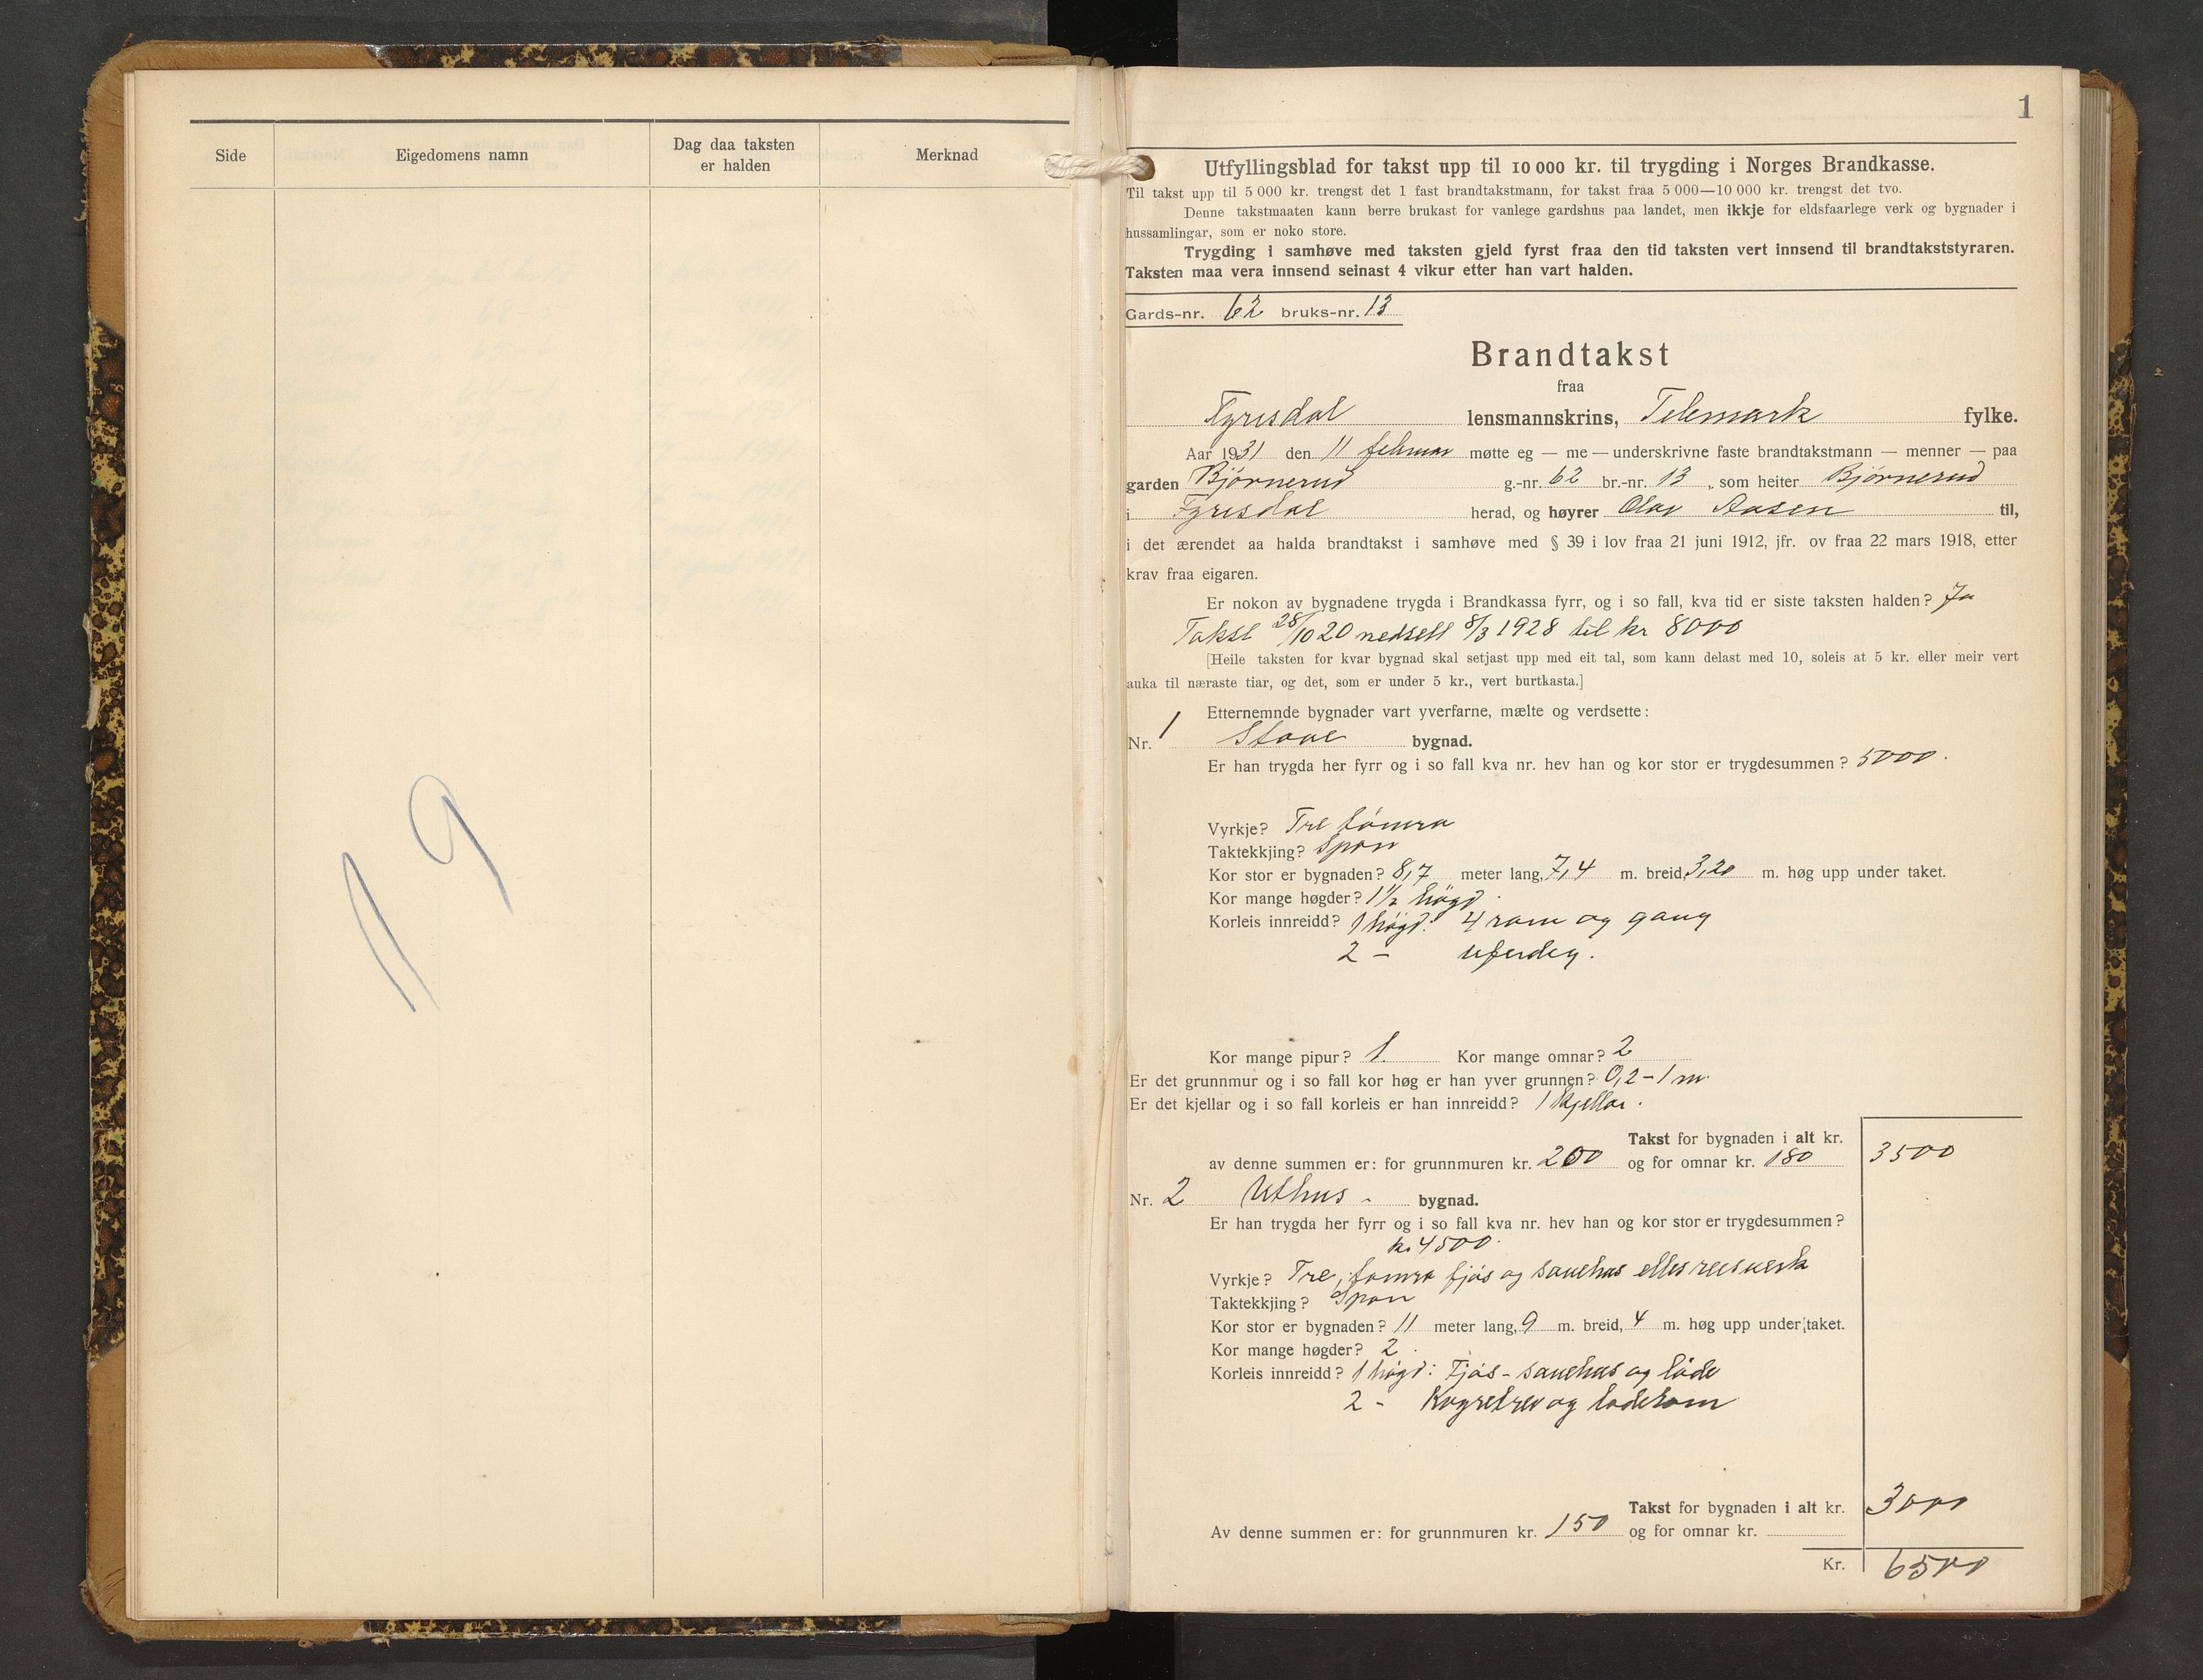 Side Eigedomens namn Dag daa taksten er halden Merknad
119
1
Utfyllingsblad for takst upp til 10 000 kr. til trygding i Norges Brandkasse.
Til takst upp til 5 000 kr. trengst det 1 fast brandtakstmann, for takst fraa 5 000—10 000 kr. trengst det tvo.
Denne takstmaaten kann berre brukast for vanlege gardshus paa landet, men ikkje for eldsfaarlege verk og bygnader i
hussamlingar, som er noko store.
Trygding i samhøve med taksten gjeld fyrst fraa den tid taksten vert innsend til brandtakststyraren.
Taksten maa vera innsend seinast 4 vikur etter han vart halden.
Gards-nr. 62 bruks-nr. 13
Brandtakst
fraa
Fyrisdal lensmannskrins, Telemark fylke.
Aar 1931 den 11 februar møtte eg — me — underskrivne faste brandtakstmann — menner — paa
garden Bjørnerud g.-nr. 62 br.-nr. 13, som heiter Bjørnerud
i Fyrisdal herad, og høyrer Olav Aasen til,
i det ærendet aa halda brandtakst i samhøve med § 39 i lov fraa 21 juni 1912, jfr. ov fraa 22 mars 1918, etter
krav fraa eigaren.
Er nokon av bygnadene trygda i Brandkassa fyrr, og i so fall, kva tid er siste taksten halden? Ja
Takst 28/10 20 nedsett 8/3 1928 til kr 8000
[Heile taksten for kvar bygnad skal setjast upp med eit tal, som kann delast med 10, soleis at 5 kr. eller meir vert
auka til næraste tiar, og det, som er under 5 kr., vert burtkasta.]
Etternemnde bygnader vart yverfarne, mælte og verdsette:
Nr. 1 Stove bygnad.
Er han trygda her fyrr og i so fall kva nr. hev han og kor stor er trygdesummen? 5000.
Vyrkje? Tre tømra
Taktekkjing? Spon
Kor stor er bygnaden? 8,7 meter lang, 7,4 m. breid, 3,20 m. høg upp under taket.
Kor mange høgder? 1½ høgd.
Korleis innreidd? 1 høgd: 4 rom og gang
2 – uferdig.
Kor mange pipur? 1. Kor mange omnar? 2
Er det grunnmur og i so fall kor høg er han yver grunnen? 0,2–1 m.
Er det kjellar og i so fall korleis er han innreidd? 1 kjellar.
Takst for bygnaden i alt kr.
av denne summen er: for grunnmuren kr. 200 og for omnar kr. 180 3500
Nr. 2 Uthus - bygnad.
Er han trygda her fyrr og i so fall kva nr. hev han og kor stor er trygdesummen?
kr 4500.
Vyrkje? Tre, tomra fjøs og sauehus elles reisverk
Taktekkjing? Spon
Kor stor er bygnaden? 11 meter lang, 9 m. breid, 4 m. høg upp under taket.
Kor mange høgder? 2.
Korleis innreidd? 1 høgd: Fjøs - sauehus og løde
2 - og loderom
Takst for bygnaden i alt kr. 3000
Av denne summen er: for grunnmuren kr. 150 og for omnar kr.
Kr. 6500